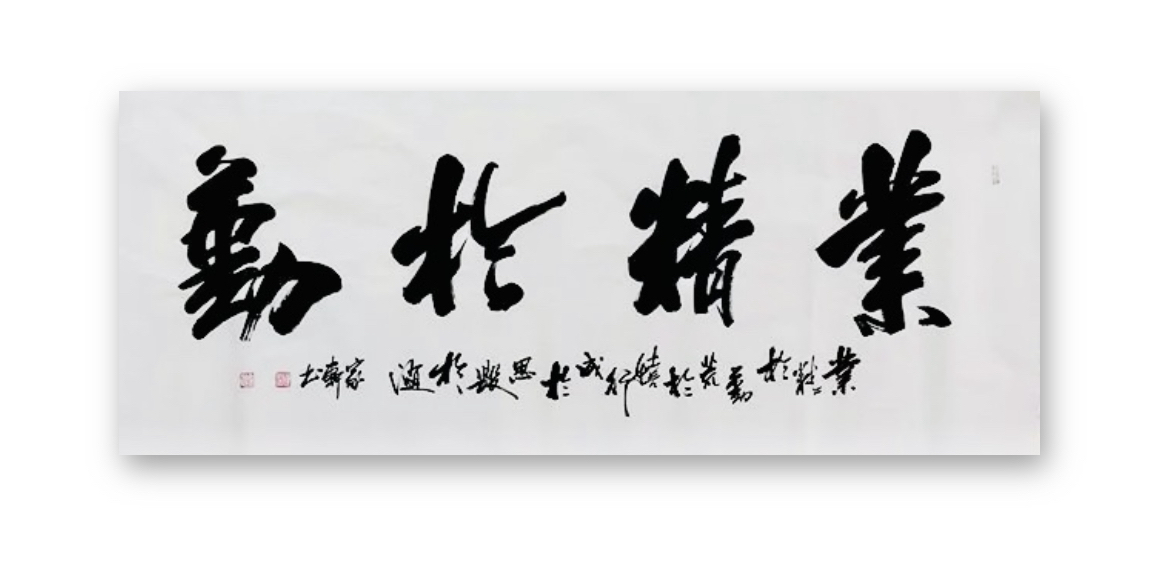 業精於勤
業精於勤荒於嬉行成於思毀於隨